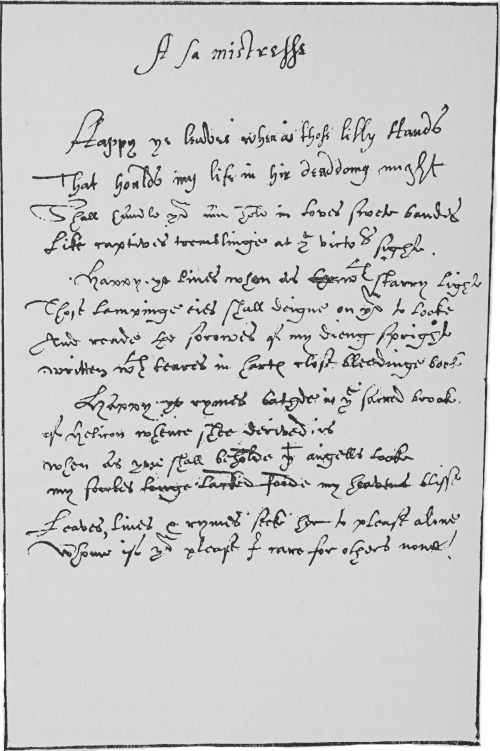 A sa mistresse
Happy ye leaves when as those lilly hands
That houlds my life in hir deaddoing might
Shall handle you and hold in loves swete bandes
Like captives tremblinge at ye victors sight.
Happy ye lines when as wth starry light
Those lampinge eies shall deigne on you to looke
And reade the sorowes of my dieng spright
written wth teares in harts close bleedinge booke
Happy ye rymes bathde in ye sacred brook
of Helicon whence shee derived is
when as you shall beholde yt angells looke
my soules longe lacked foode my heavens blisse
Leaves, lines & rymes seek her to please alone
Whome if you please I care for others none!